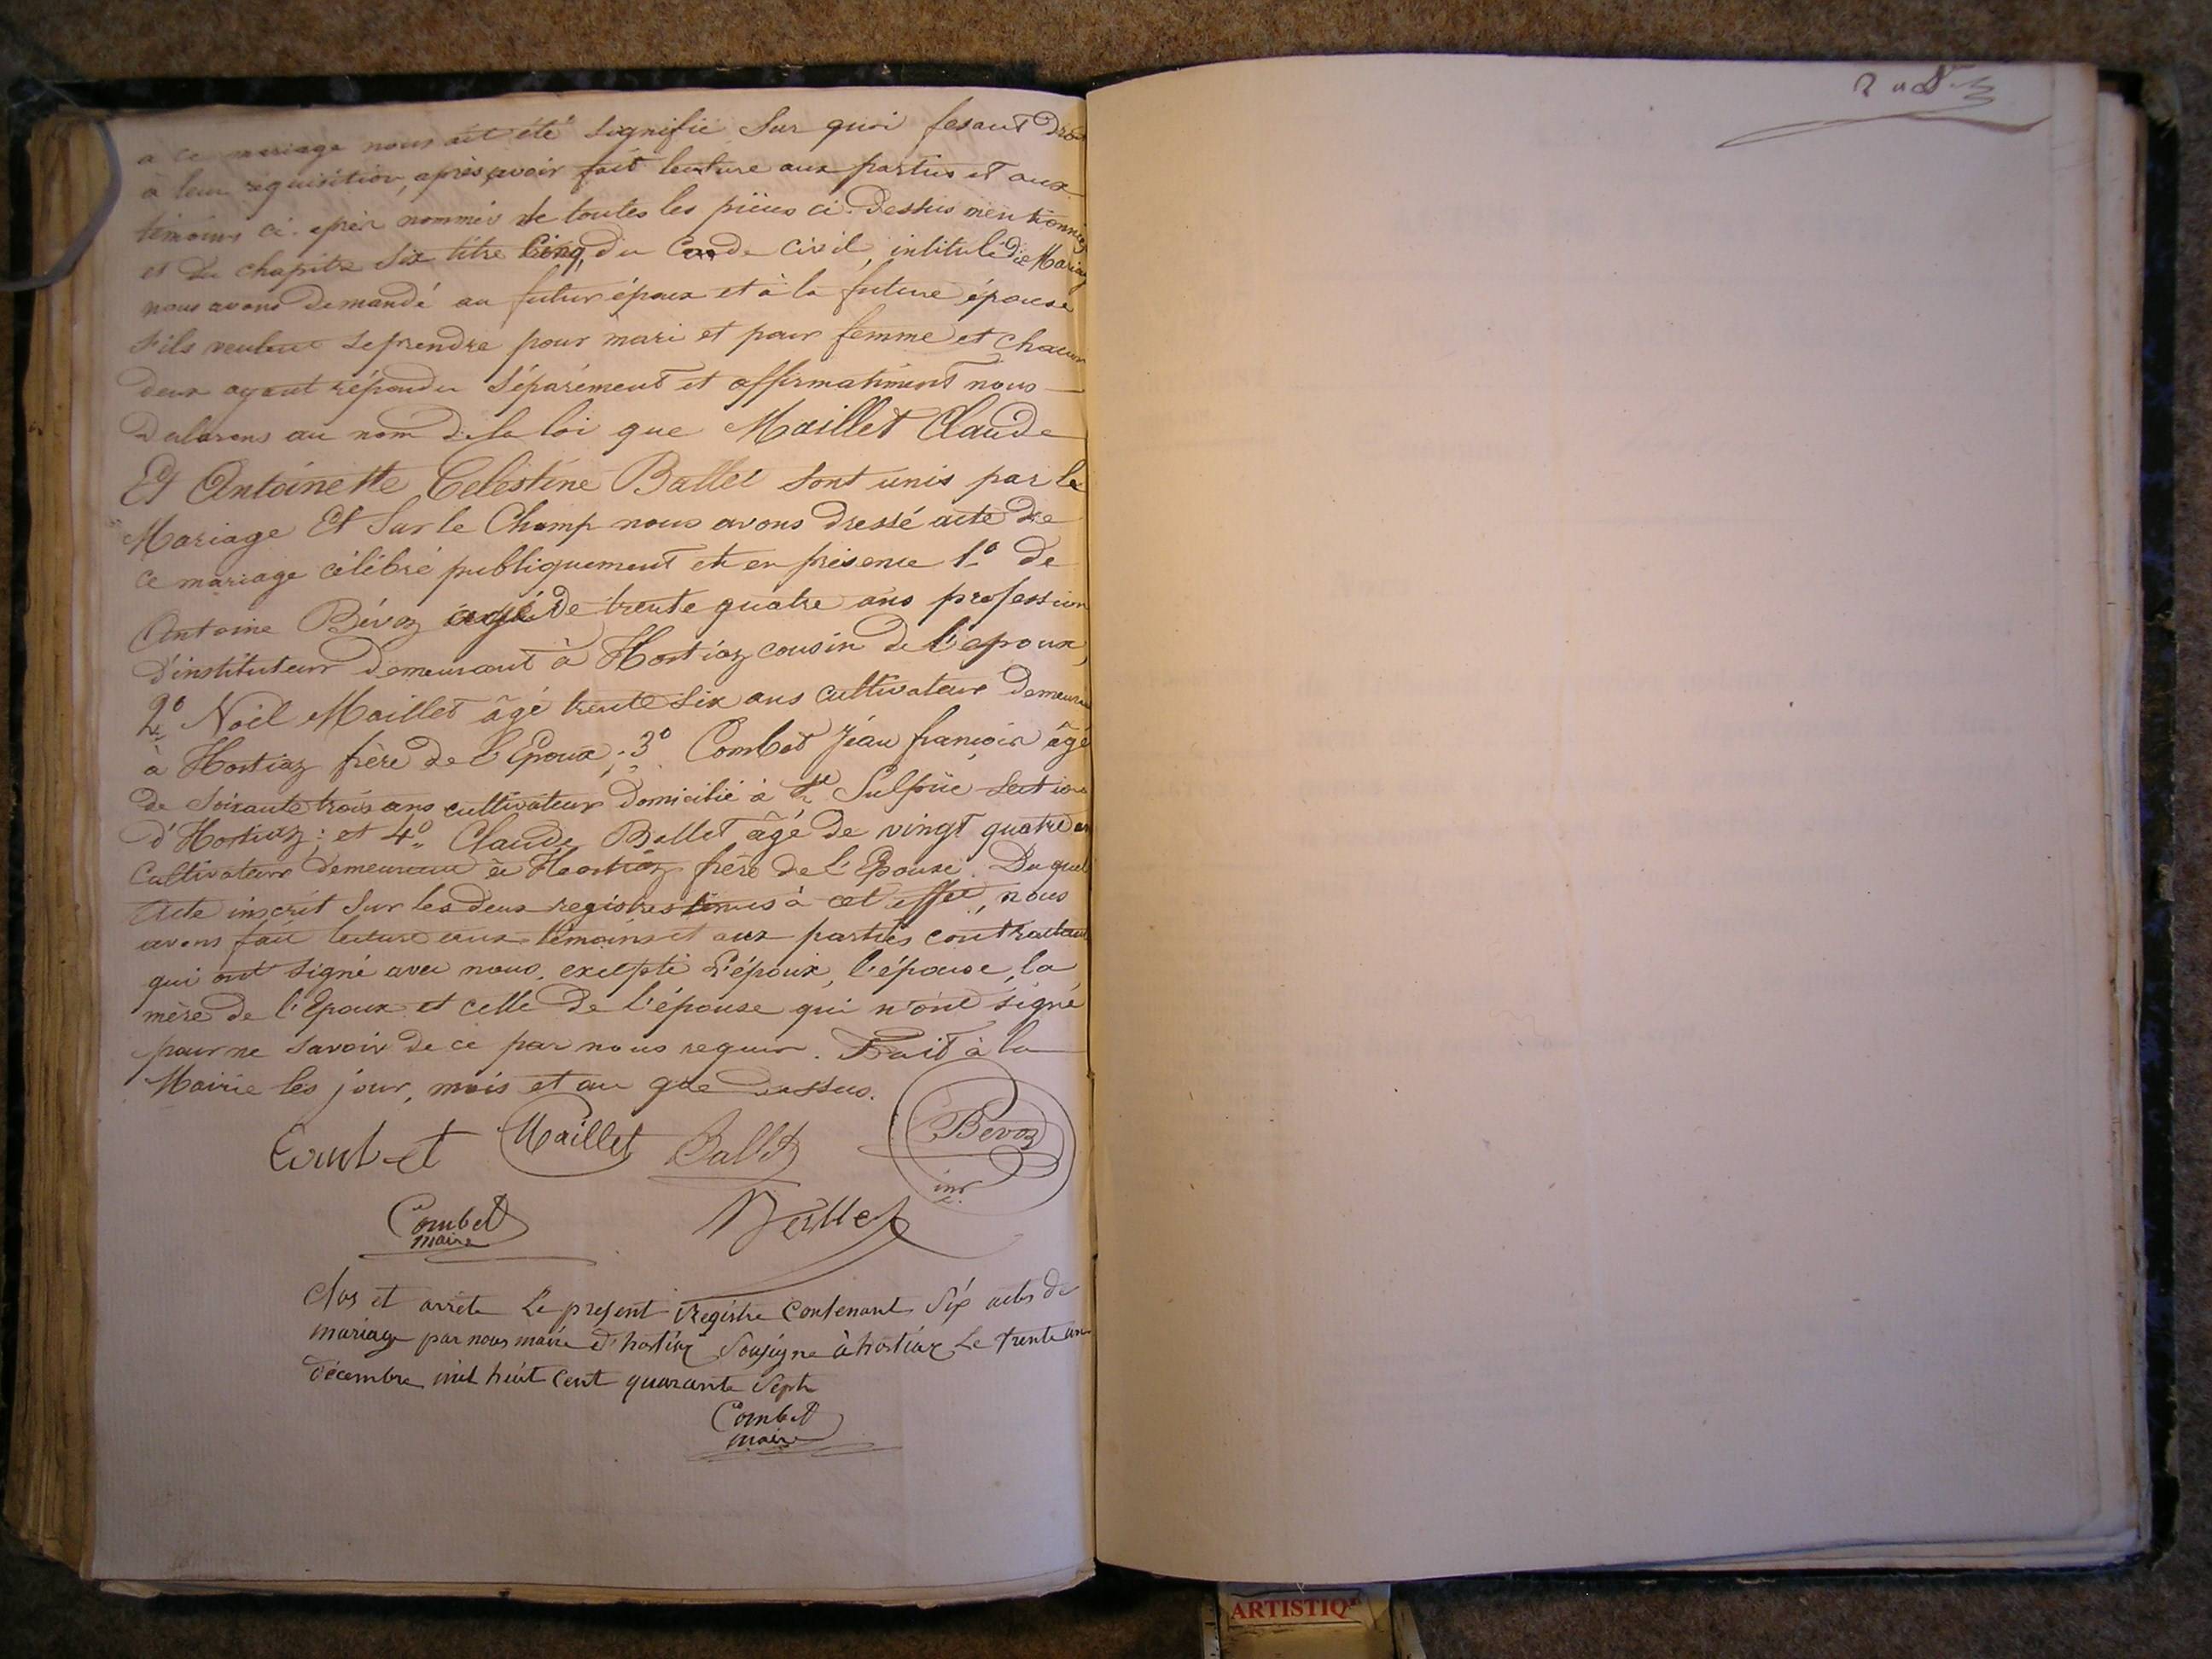 a ce mariage nous ait été signifié Sur quoi fesant droit
à leur réquisition, après avoir fait lecture aux parties et aux
témoins ci-après nommés de toutes les pièces ci-dessus mentionnées
et du chapitre Six titre Cinq du Code civil, intitulé du Mariage
nous avons demandé au futur époux et à la future épouse
s'ils veulent se prendre pour mari et pour femme et chacun
deux ayant répondu séparément et affirmativement nous
declarons au nom de la loi que Maillet Claude
Et Antoinette Célestine Ballet sont unis par le
Mariage Et Sur le Champ nous avons dressé acte de
ce mariage célébré publiquement et en présence 1º de
Antoine Bévoz agé de trente quatre ans profession
d'instituteur demeurant à Hostiaz cousin de l'epoux,
2º Noël Maillet âgé trente six ans cultivateur demeurant
à Hostiaz frère de l'Epoux; 3º Combet Jean françois âgé
de soixante trois ans cultivateur domicilié à St Sulpice section
d'Hostiaz; et 4º Claude Ballet âgé de vingt quatre ans
Cultivateur demeurant à Hostiaz frère de l'Epouse. Du quel
Acte inscrit sur les deux registres tenus à cet effet, nous
avons fait lecture aux témoins et aux parties contractants
qui ont signé avec nous, excepté l'époux, l'épouse, la
mère de l'Epoux et celle de l'épouse qui n'ont signé
pour ne savoir de ce par nous requis. Fait à la
Mairie les jour, mois et an que dessus.
Combet Maillet Ballet Bévoz
inr
Combet
maire
Clos et arrêté le present Registre contenant Six actes de
mariage par nous maire d'hostiaz Sousigné à hostiaz le trente un
décembre mil huit cent quarante Sept
Combet
maire